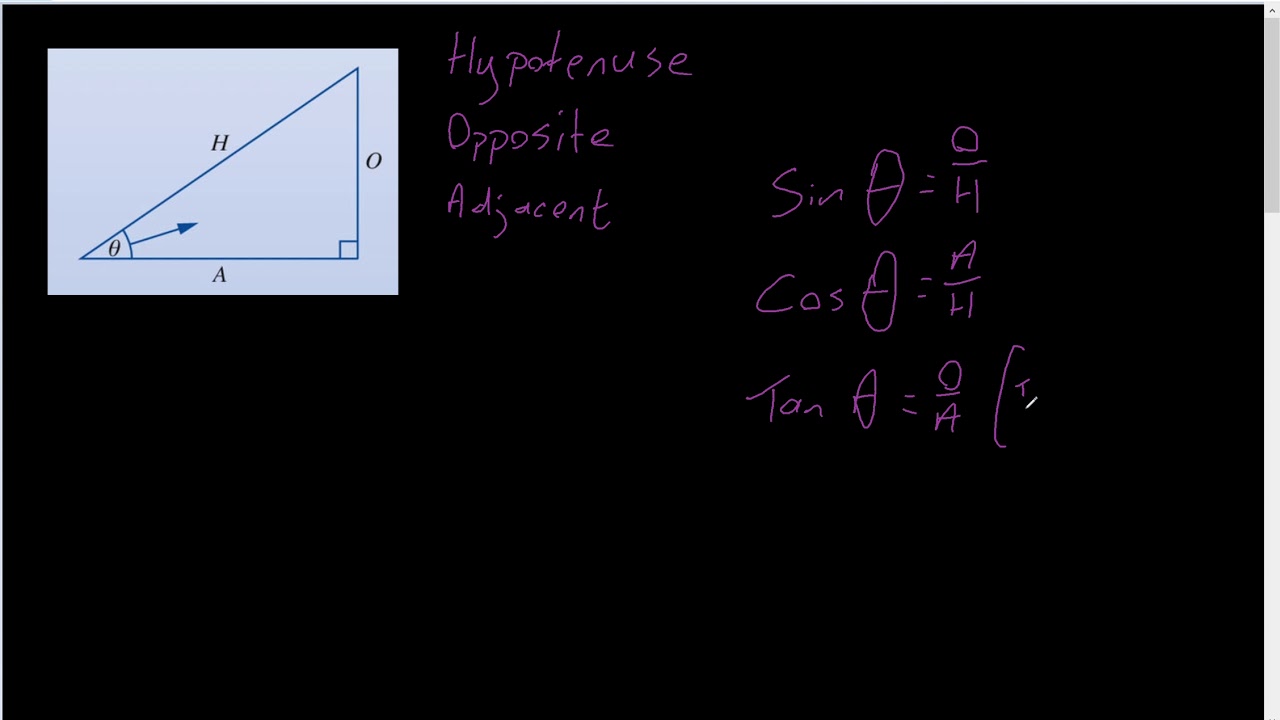 H
O
θ
A
Hypotenuse
Opposite
Adjacent
Sin θ = O/H
Cos θ = A/H
Tan θ = O/A ( T